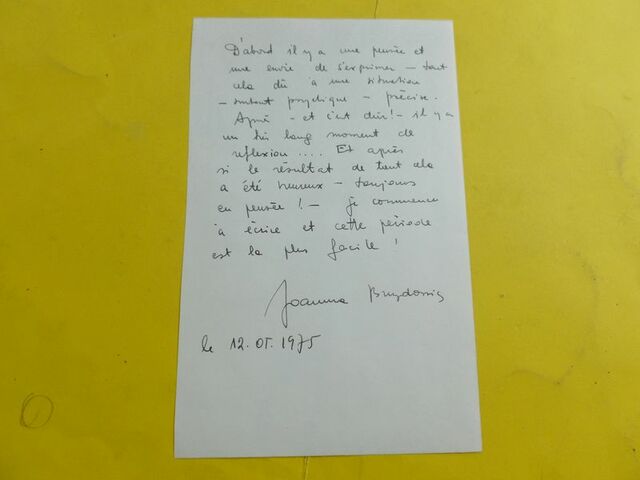 D'abord il y a une pensée et
une envie de s'exprimer – tout
cela dû à une situation
– surtout psychique – précise.
Après – et c'est dûr! – il y a
un très long moment de
reflexion .... Et après
si le résultat de tout cela
a été heureux – toujours
en pensée! – je commence
à écrire et cette période
est la plus facile!
Joanna Bruzdowicz
le 12.01.1975